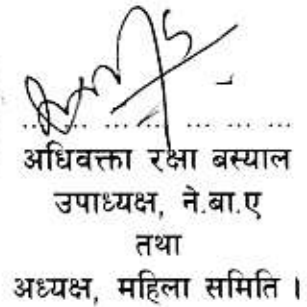 अधिवक्ता रक्षा बस्याल
उपाध्यक्ष, ने.बा.ए
तथा
अध्यक्ष, महिला समिति ।